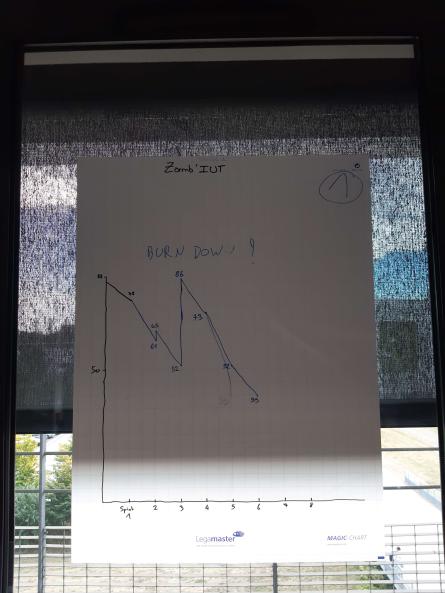 Zomb'IUT
1
BURN DOWN !
86
73
65
61
52
50
Sprint
1
2
3
4
5
6
7
8
Legamaster
MAGIC-CHART